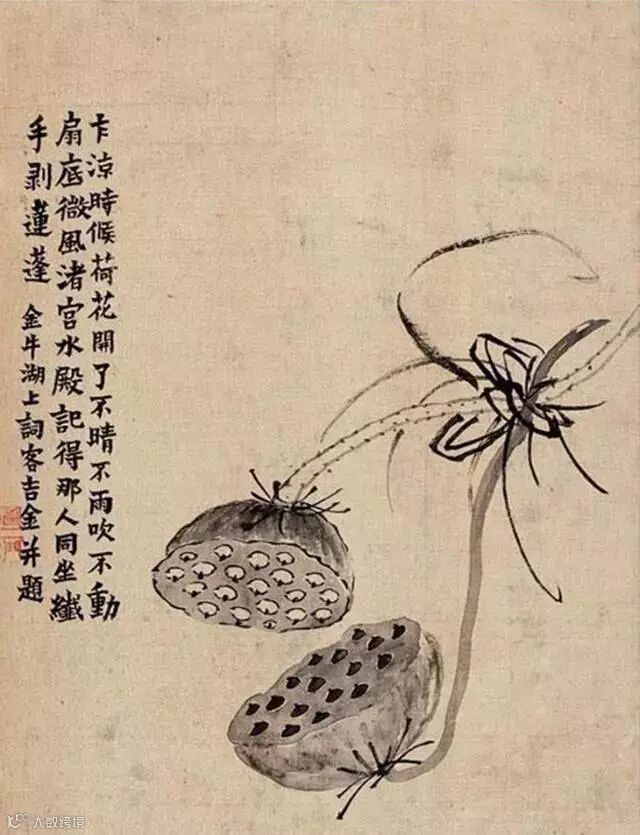 乍涼時候荷花開了不晴不雨吹不動
扇底微風渚宮水殿記得那人同坐纖
手剥蓮蓬 金牛湖上詞客吉金并題
大数跨境